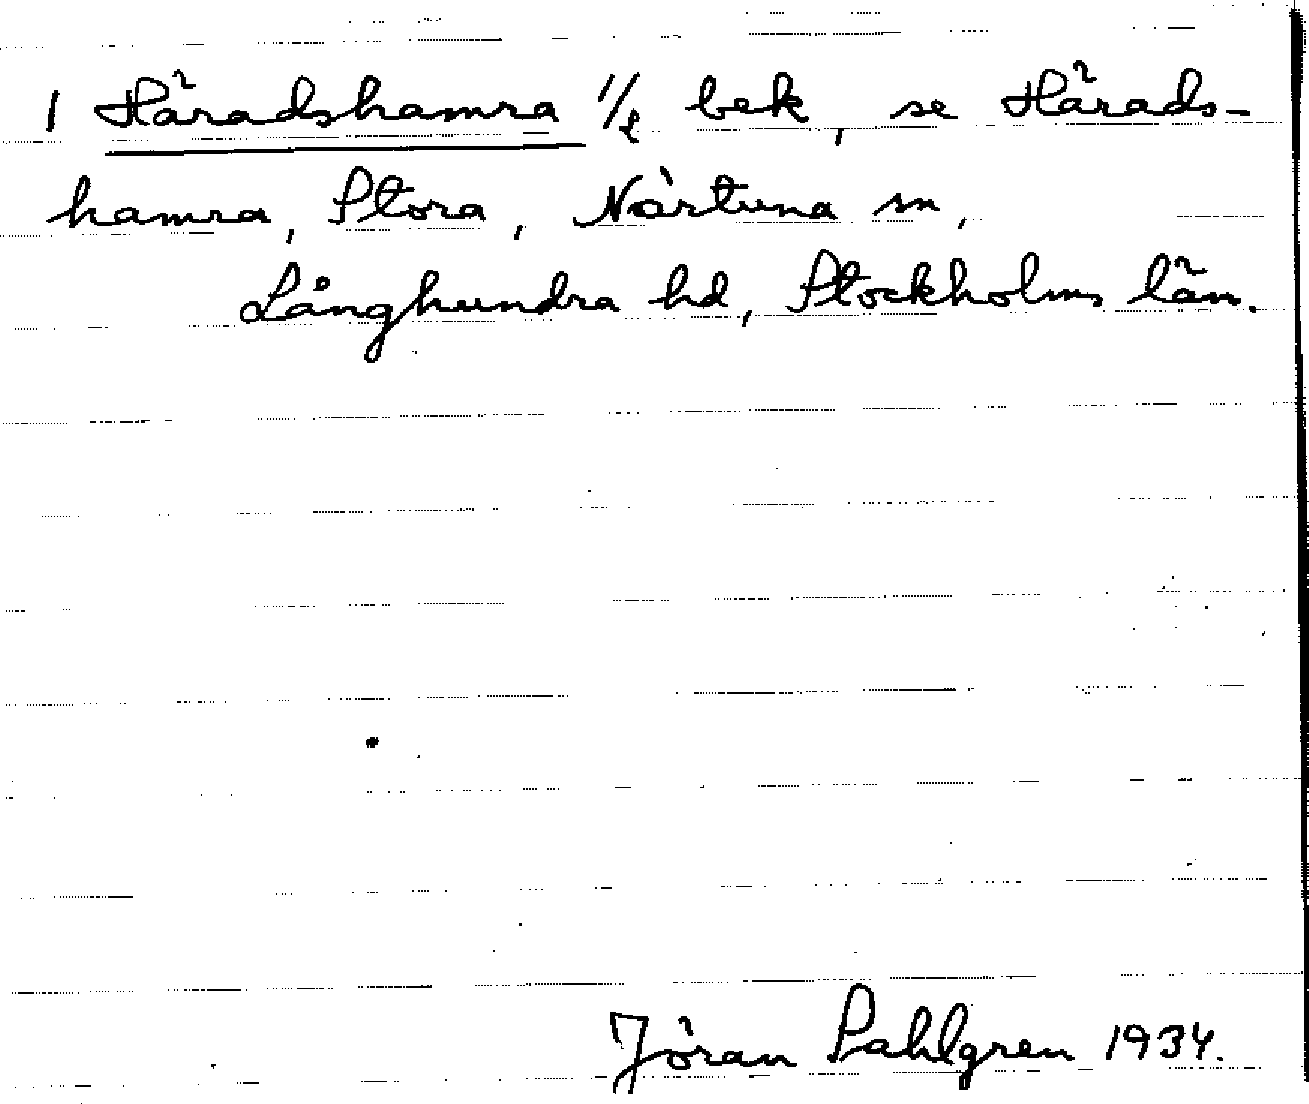 1 Häradshamra 1/1 bek, se Härads-
hamra, Stora, Närtuna sn,
Långhundra hd, Stockholms län.
Jöran Sahlgren 1934.